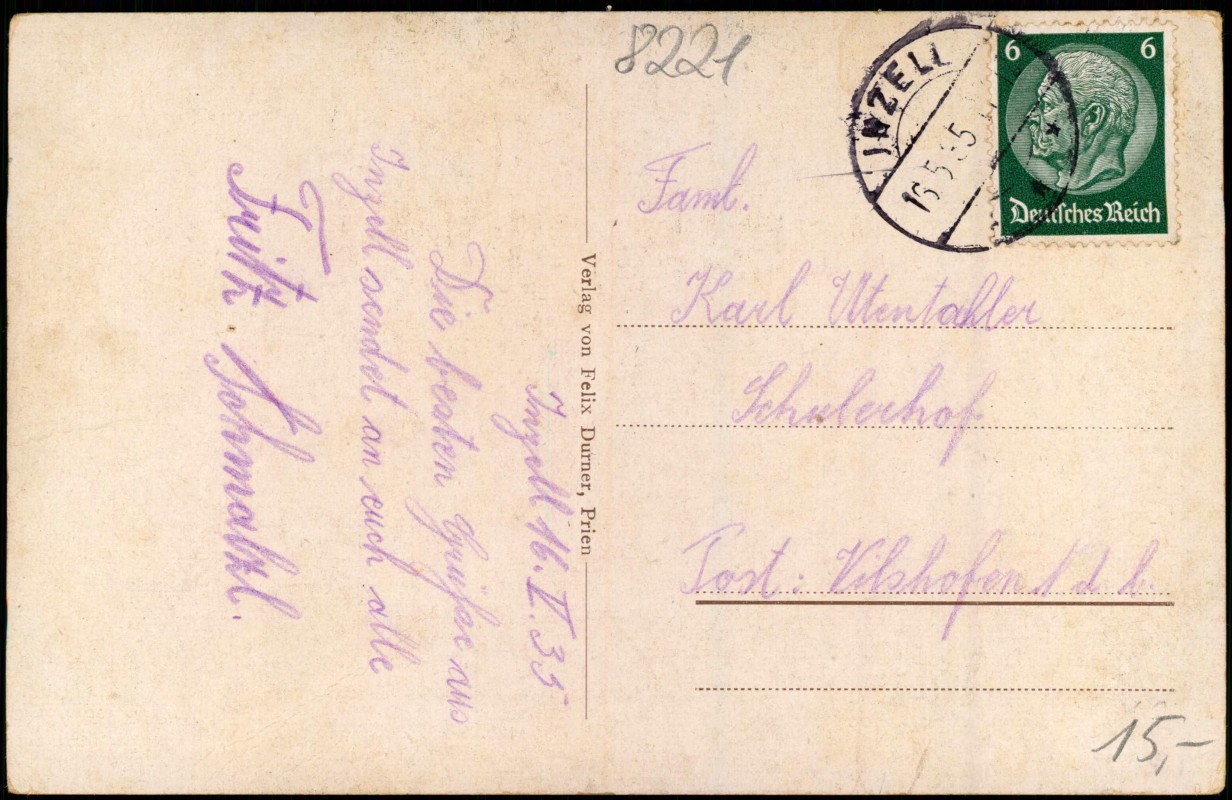 8221
INZELL
16.5.35
6 6
Deutsches Reich
Inzell 16.V.35
Die besten Grüße aus
Inzell sendet an euch alle
Fritz
Verlag von Felix Durner, Prien
Faml.
Karl Utentahler
Schulerhof
Post: Vilshofen N d. b.
15,-